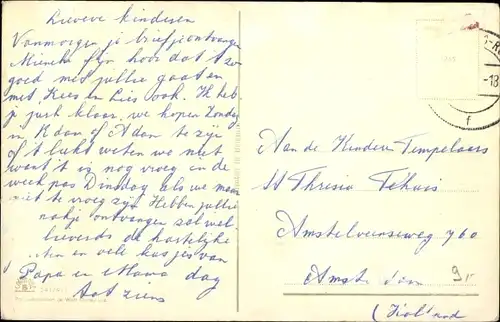 Lieveve kinderen
Vanmorgen je briefje ontvangen
Mieneke fijn hoor dat 't zo
goed met jullie gaat en
met Kees en Lies ook. Ik heb
je just klaar, we hopen Zondag
in R dam of A dam te zijn
of 't lukt weten we niet
want 't is nog vroeg in de
week pas Dinsdag als we maar
niet te vroeg zijn Hebben jullie
ontvangen zal wel
lieverds de hartelijke
en vele kusjes van
Papa en Mama dag
tot ziens
Aan de Kinderen Tempelaars
St Thresia Tehuis
Amstelveenseweg 760
Amsterdam
(Holland